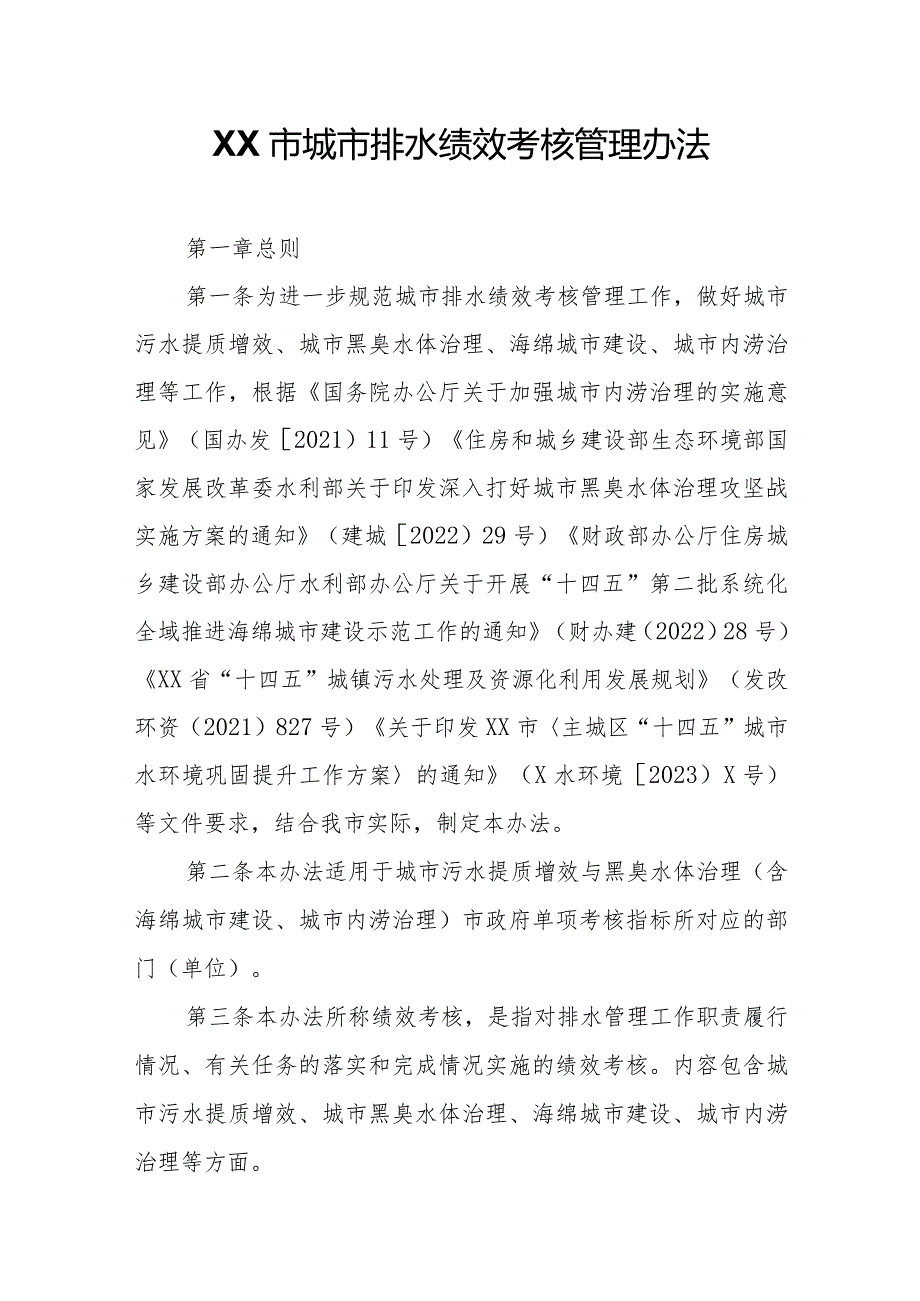 XX市城市排水绩效考核管理办法
第一章总则
第一条为进一步规范城市排水绩效考核管理工作，做好城市
污水提质增效、城市黑臭水体治理、海绵城市建设、城市内涝治
理等工作，根据《国务院办公厅关于加强城市内涝治理的实施意
见》（国办发［2021）11号）《住房和城乡建设部生态环境部国
家发展改革委水利部关于印发深入打好城市黑臭水体治理攻坚战
实施方案的通知》（建城［2022）29号）《财政部办公厅住房城
乡建设部办公厅水利部办公厅关于开展“十四五”第二批系统化
全域推进海绵城市建设示范工作的通知》（财办建（2022）28号）
《XX省“十四五”城镇污水处理及资源化利用发展规划》（发改
环资（2021）827号）《关于印发XX市〈主城区“十四五”城市
水环境巩固提升工作方案〉的通知》（X水环境［2023）X号）
等文件要求，结合我市实际，制定本办法。
第二条本办法适用于城市污水提质增效与黑臭水体治理（含
海绵城市建设、城市内涝治理）市政府单项考核指标所对应的部
门（单位）。
第三条本办法所称绩效考核，是指对排水管理工作职责履行
情况、有关任务的落实和完成情况实施的绩效考核。内容包含城
市污水提质增效、城市黑臭水体治理、海绵城市建设、城市内涝
治理等方面。